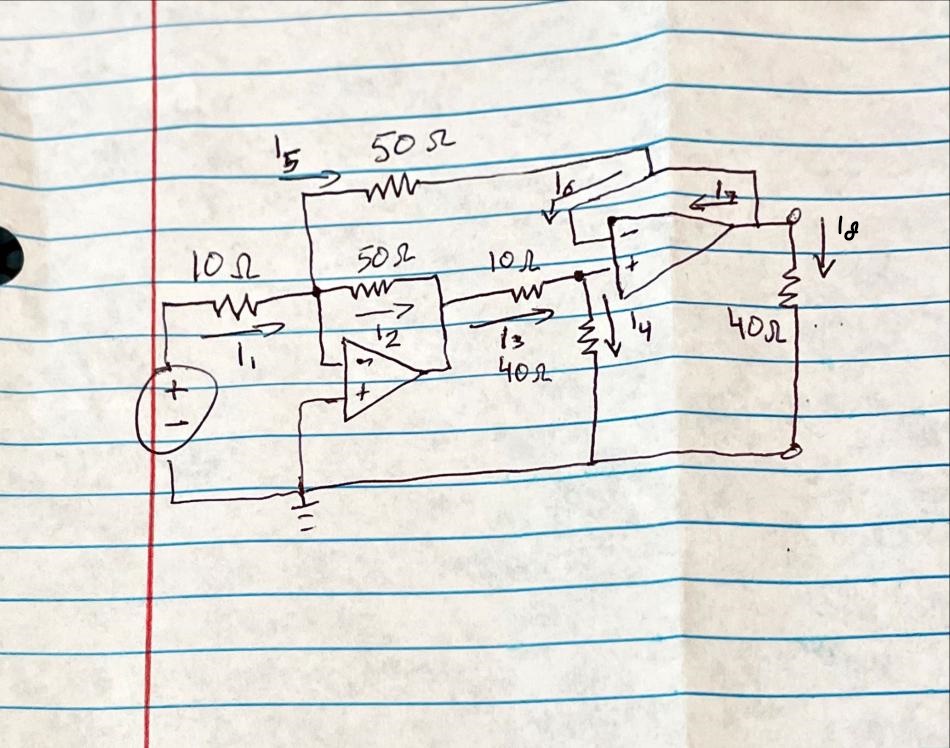 I5 50 Ω
I6 I7
I8
10 Ω 50 Ω 10 Ω
−
+
I1 I2 I3 I4
40 Ω 40 Ω
+
−
−
+